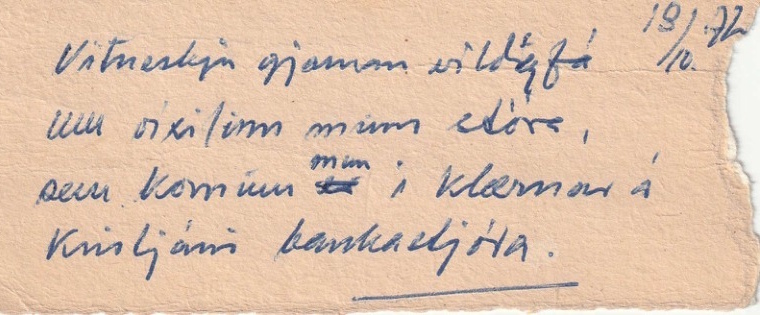 18/10. 72
Vitneskju gjarnan vild'ég fá
um víxilinn minn stóra,
sem kominn mun í klærnar á
Kristjáni bankastjóra.